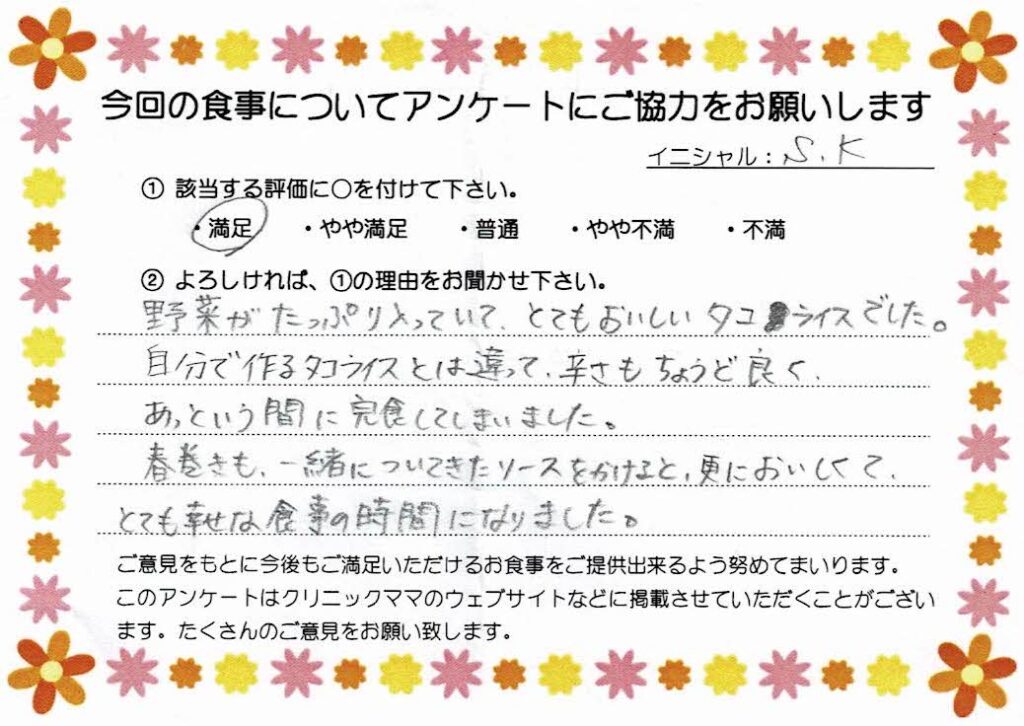 今回の食事についてアンケートにご協力をお願いします
イニシャル：S.K
① 該当する評価に〇を付けて下さい。
・満足 ・やや満足 ・普通 ・やや不満 ・不満
② よろしければ、①の理由をお聞かせ下さい。
野菜がたっぷり入っていて、とてもおいしいタコライスでした。
自分で作るタコライスとは違って、辛さもちょうど良く、
あっという間に完食してしまいました。
春巻きも、一緒についてきたソースをかけると、更においしくて、
とても幸せな食事の時間になりました。
ご意見をもとに今後もご満足いただけるお食事をご提供出来るよう努めてまいります。
このアンケートはクリニックママのウェブサイトなどに掲載させていただくことがござい
ます。たくさんのご意見をお願い致します。